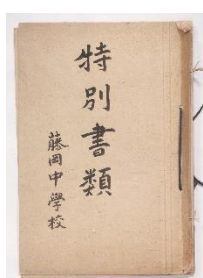 特別書類
藤岡中學校